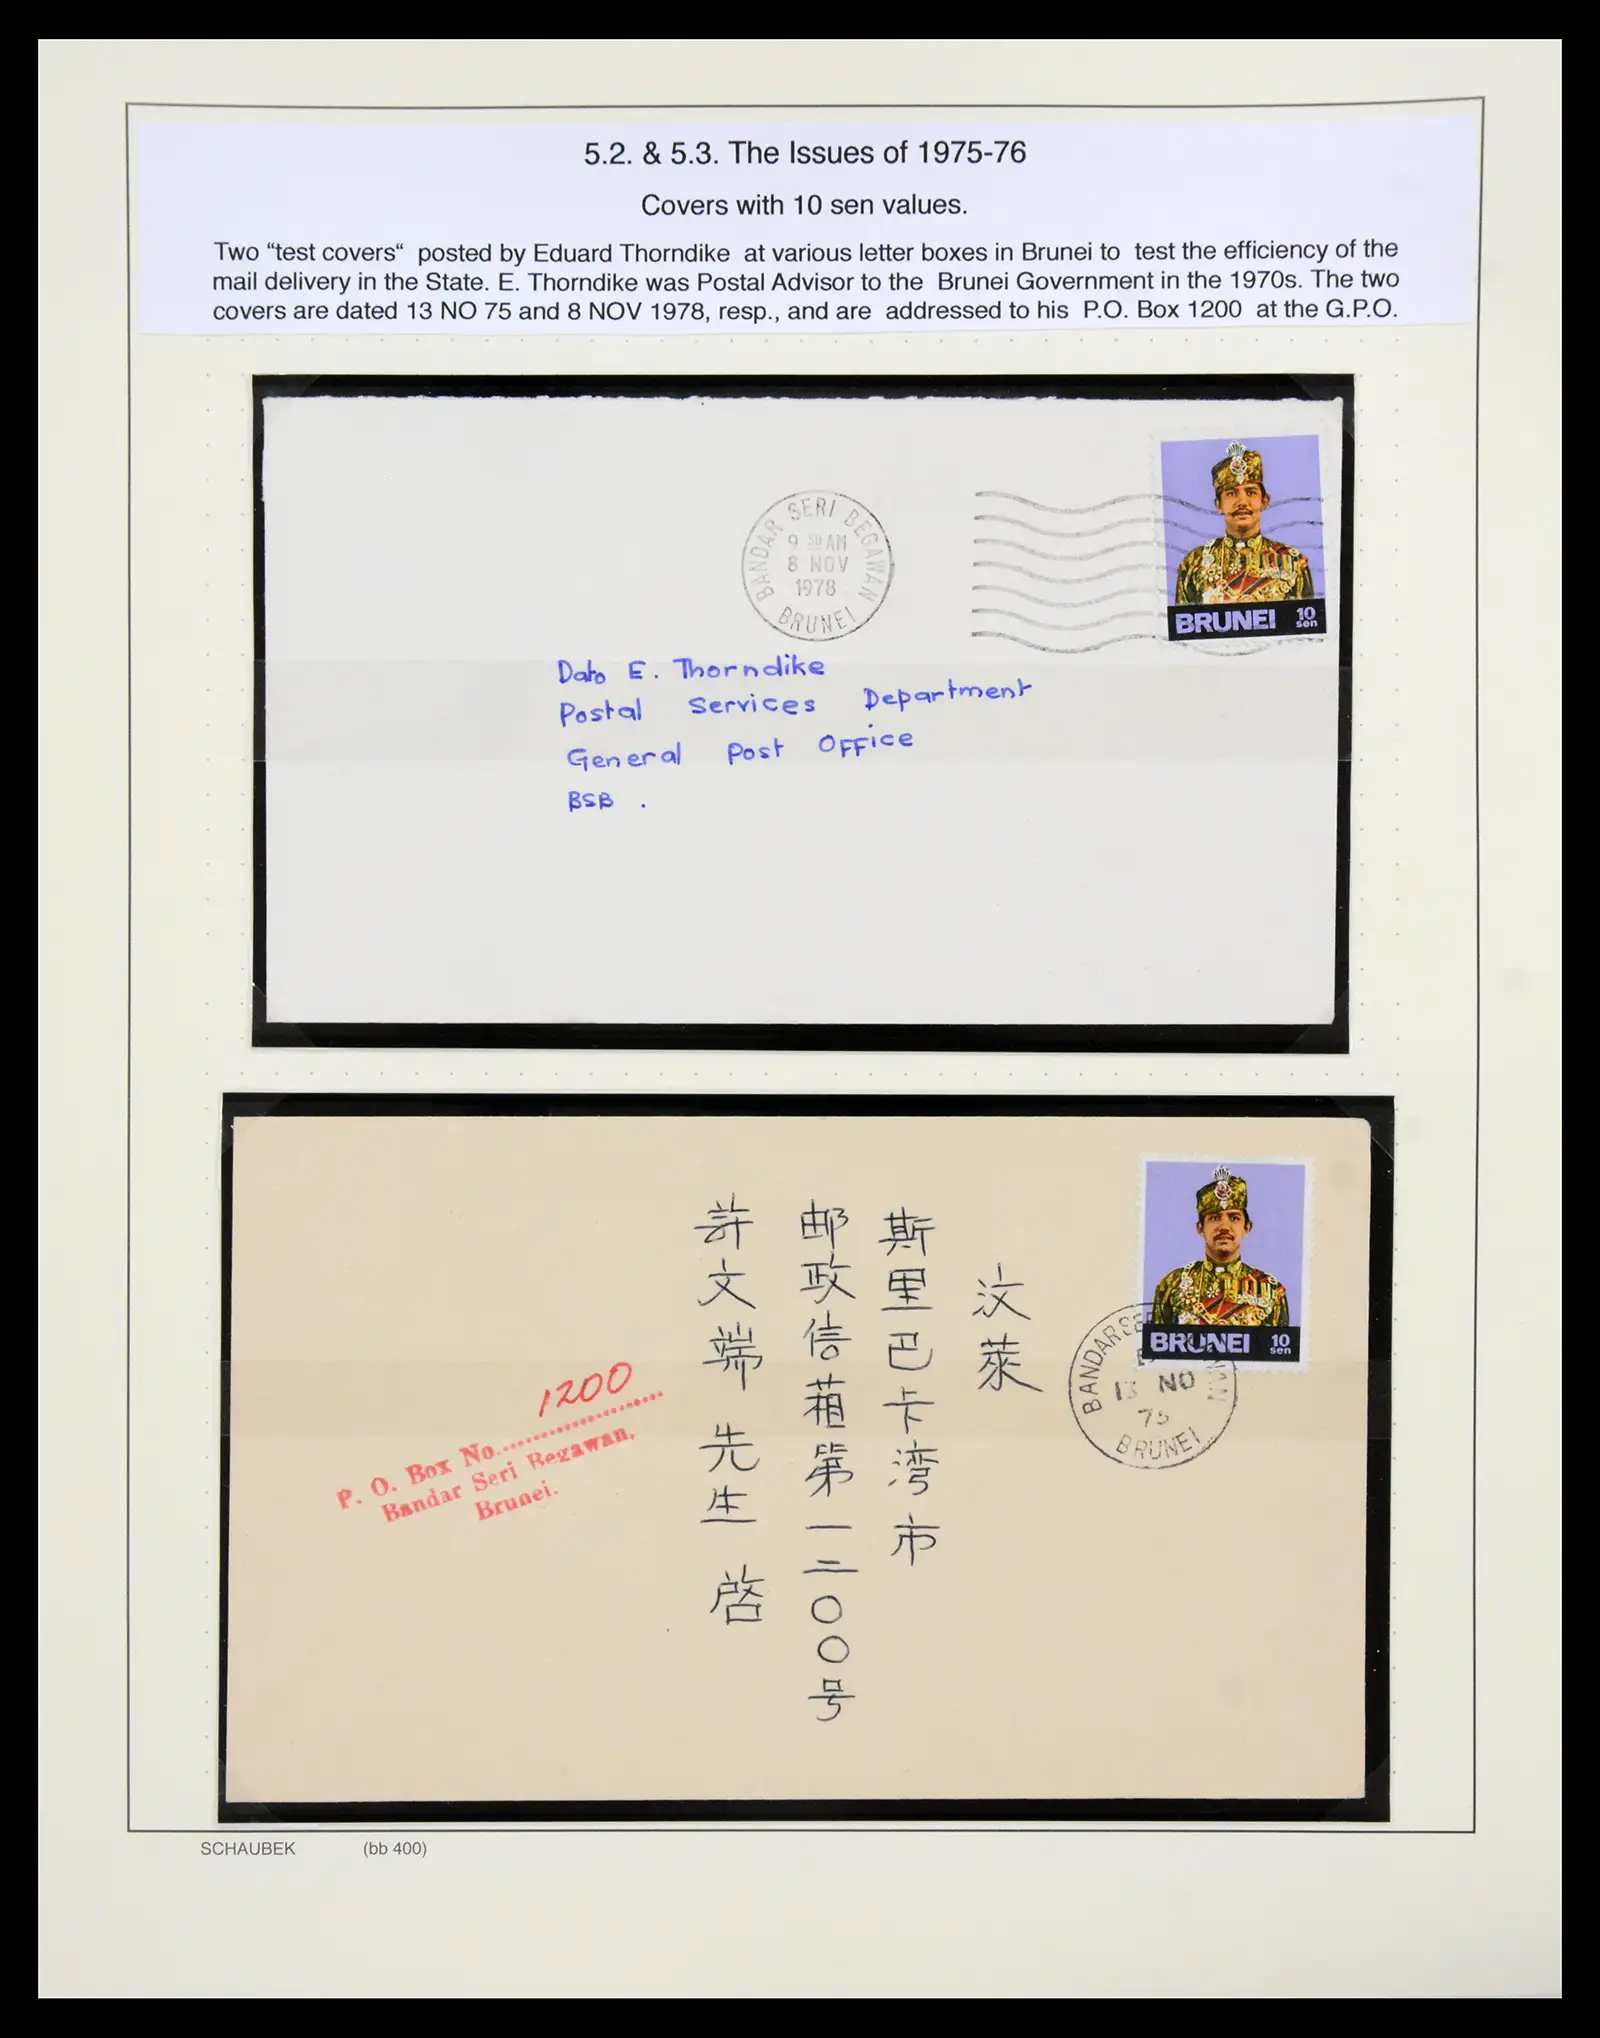 5.2. & 5.3. The Issues of 1975-76
Covers with 10 sen values.
Two “test covers“ posted by Eduard Thorndike at various letter boxes in Brunei to test the efficiency of the
mail delivery in the State. E. Thorndike was Postal Advisor to the Brunei Government in the 1970s. The two
covers are dated 13 NO 75 and 8 NOV 1978, resp., and are addressed to his P.O. Box 1200 at the G.P.O.
BANDAR SERI BEGAWAN
9 30 AM
8 NOV
1978
BRUNEI
BRUNEI 10 sen
Dato E. Thorndike
Postal Services Department
General Post Office
BSB .
BRUNEI 10 sen
BANDAR SE
13 NO
75
BRUNEI
汶萊
斯里巴卡湾市
邮政信箱第一二〇〇号
許文端 先生 啓
1200
P. O. Box No.
Bandar Seri Begawan,
Brunei.
SCHAUBEK (bb 400)